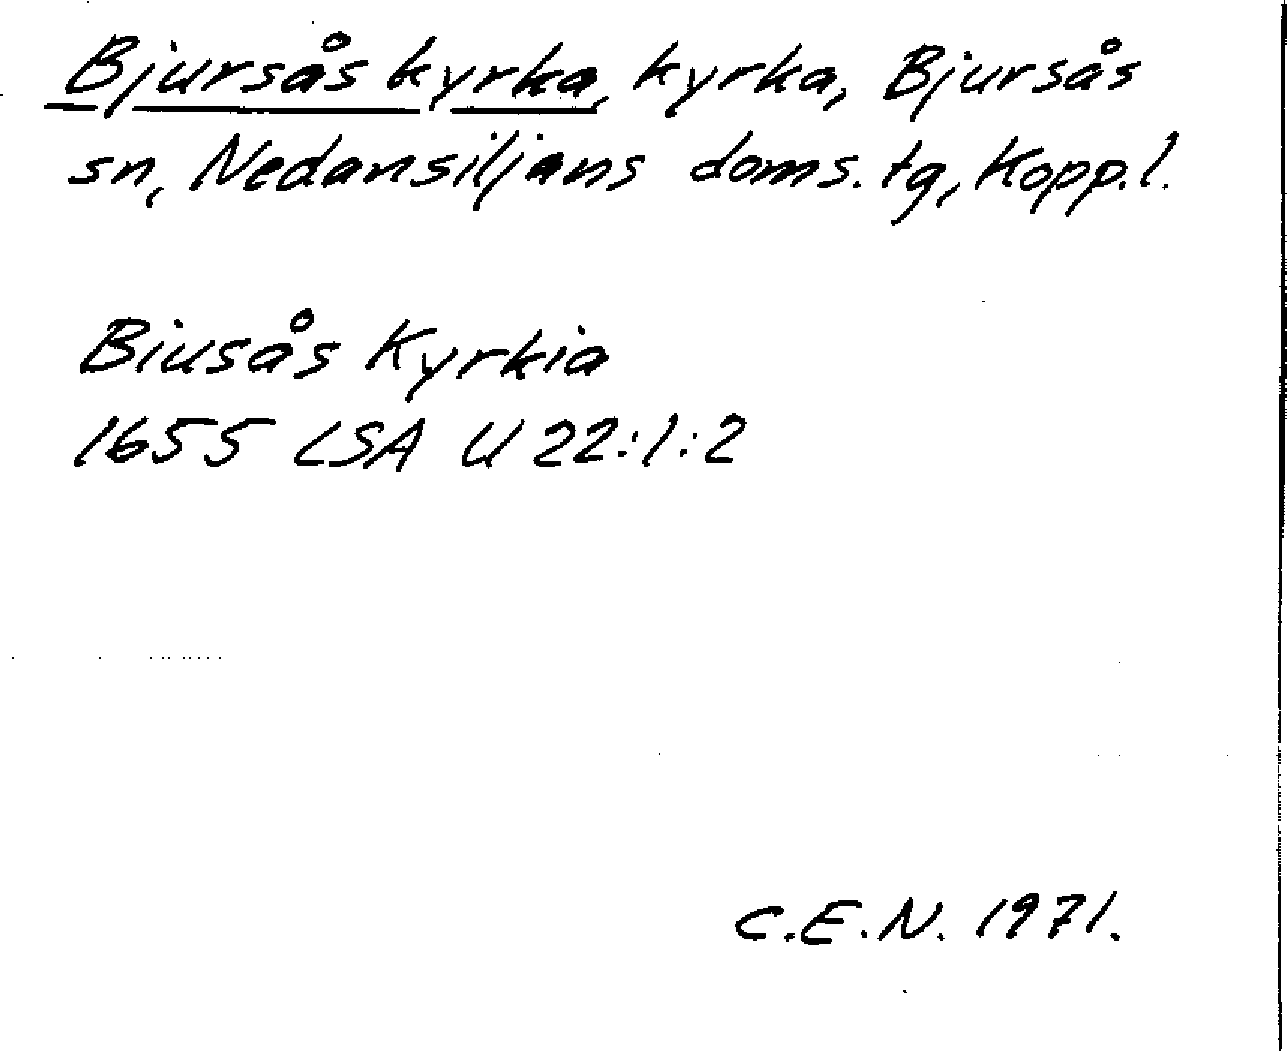 Bjursås kyrka, kyrka, Bjursås
sn, Nedansiljans doms. tg, Kopp.l.
Biusås Kyrkia
1655 LSA U 22:1:2
C.E.N. 1971.